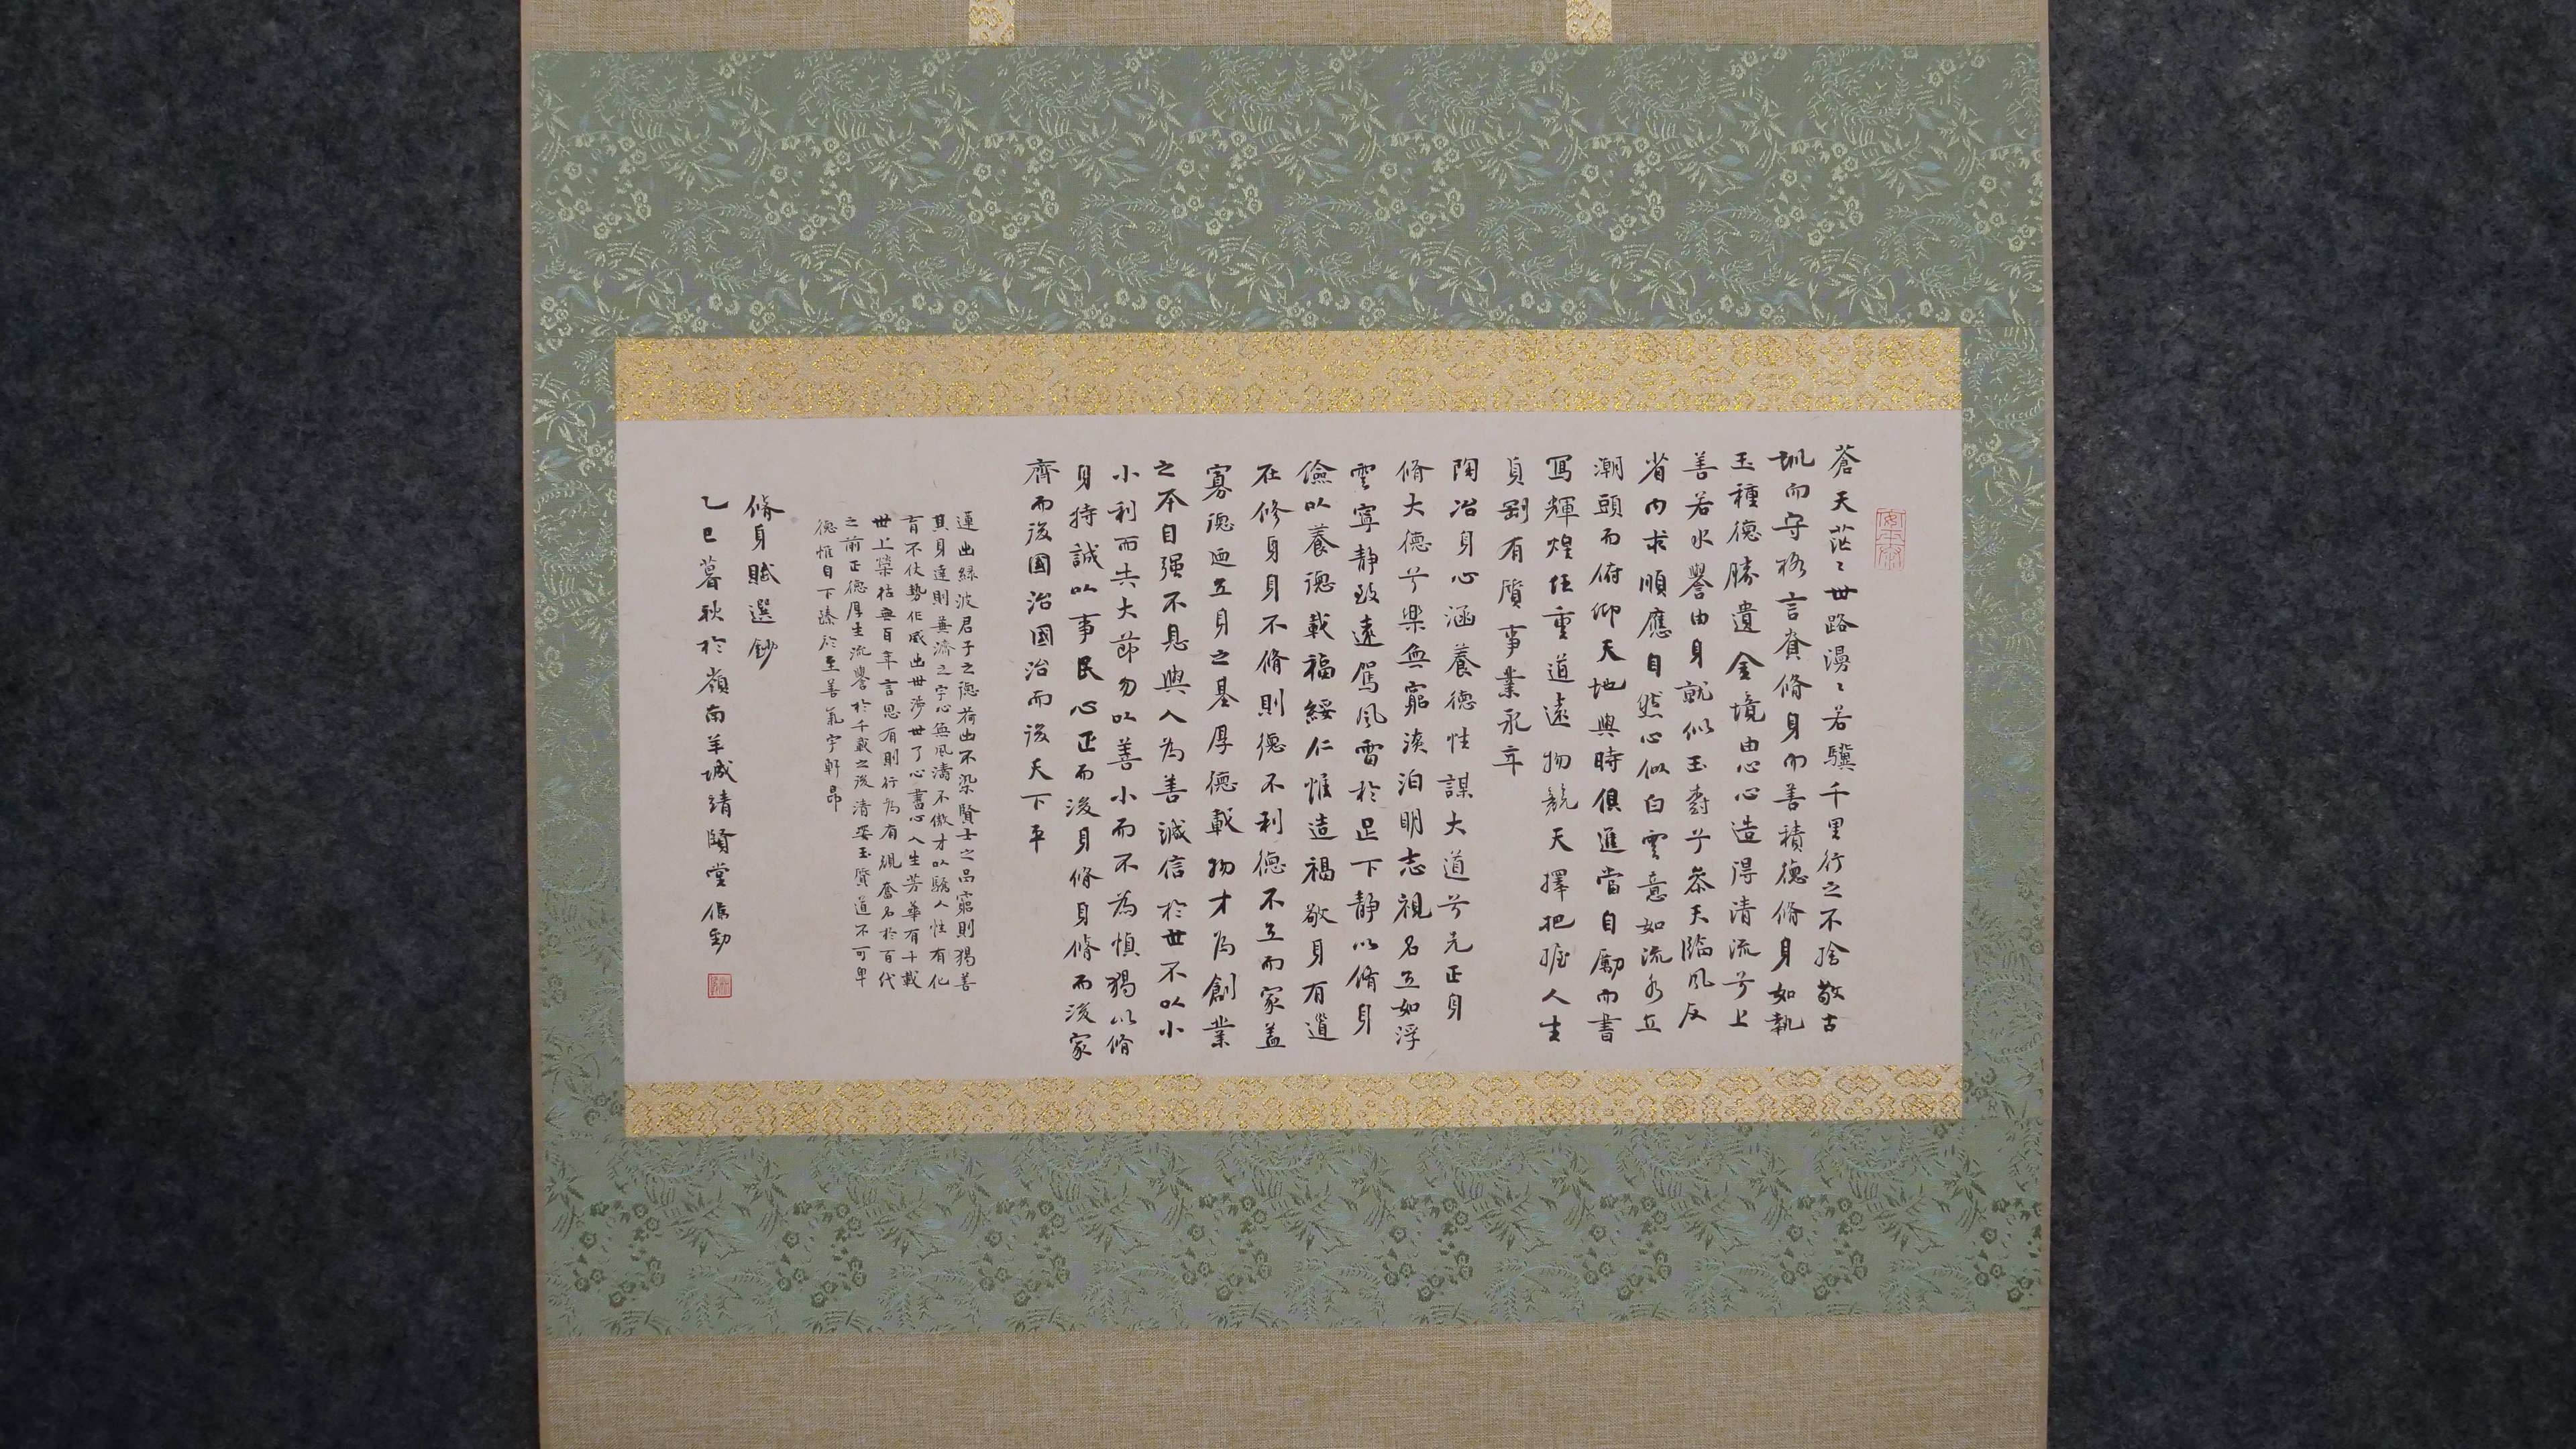 蒼天茫〻世路漫〻若驥千里行之不捨敬古
訓而守格言資脩身而善積德脩身如執
玉種德勝遺金境由心心造得清流兮上
善若水譽由身就似玉樹兮參天臨風反
省內求順應自然心似白雲意如流水立
潮頭而俯仰天地與時俱進當自勵而書
寫輝煌任重道遠物競天擇把握人生
貞剛有質事業永年
陶冶身心涵養德性謀大道兮先正身
脩大德兮樂無窮淡泊明志視名立如浮
雲寧靜致遠駕風雷於足下靜以脩身
儉以養德載福綏仁惟造福敬身有道
在修身身不脩則德不利德不立而家蓋
寡德迺立身之基厚德載物才為創業
之本自强不息與人為善誠信於世不以小
小利而失大節勿以善小而不為慎獨以脩
身持誠以事民心正而後身脩身脩而後家
齊而後國治國治而後天下平
蓮出綠波君子之德荷出不染賢士之品窮則獨善
其身達則兼濟之宇心無風濤不傲才以驕人性有化
育不仗勢作威出世涉世了心書心人生芳華有十載
世上榮枯無百年言思有則行為有規奮名於百代
之前正德厚生流譽於千載之後清姿玉質道不可卑
德惟自下臻於至善氣宇軒昂
脩身賦選鈔
乙巳暮秋於嶺南羊城靖賢堂 勁